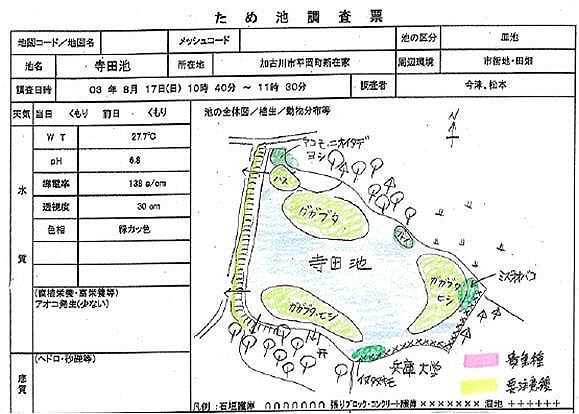 ため池調査票
地図コード／地図名 メッシュコード 池の区分 皿池
池名 寺田池 所在地 加古川市平岡町新在家 周辺環境 市街地・田畑
調査日時 03 年 8 月 17日(日) 10 時 40分 ～ 11 時 30分 調査者 今津、松本
天気 当日 くもり 前日 くもり 池の全体図／植生／動物分布等
水質
W T 27.7℃
pH 6.8
導電率
透視度 30 cm
色相 緑カッ色
(腐植栄養・富栄養等)
アオコ発生(少ない)
底質
(ヘドロ・砂礫等)
N
マコモ・ニオイタデ
ヨシ
ハス
ガガブタ
寺田池
ガガブタ
ヒシ
ミズオオバコ
ガガブタ・ヒシ
兵庫大学
危急種
要注意種
凡例：石垣護岸 ○○○○○○○ 張りブロック・コンクリート護岸 ××××××× 湿地 ++++++